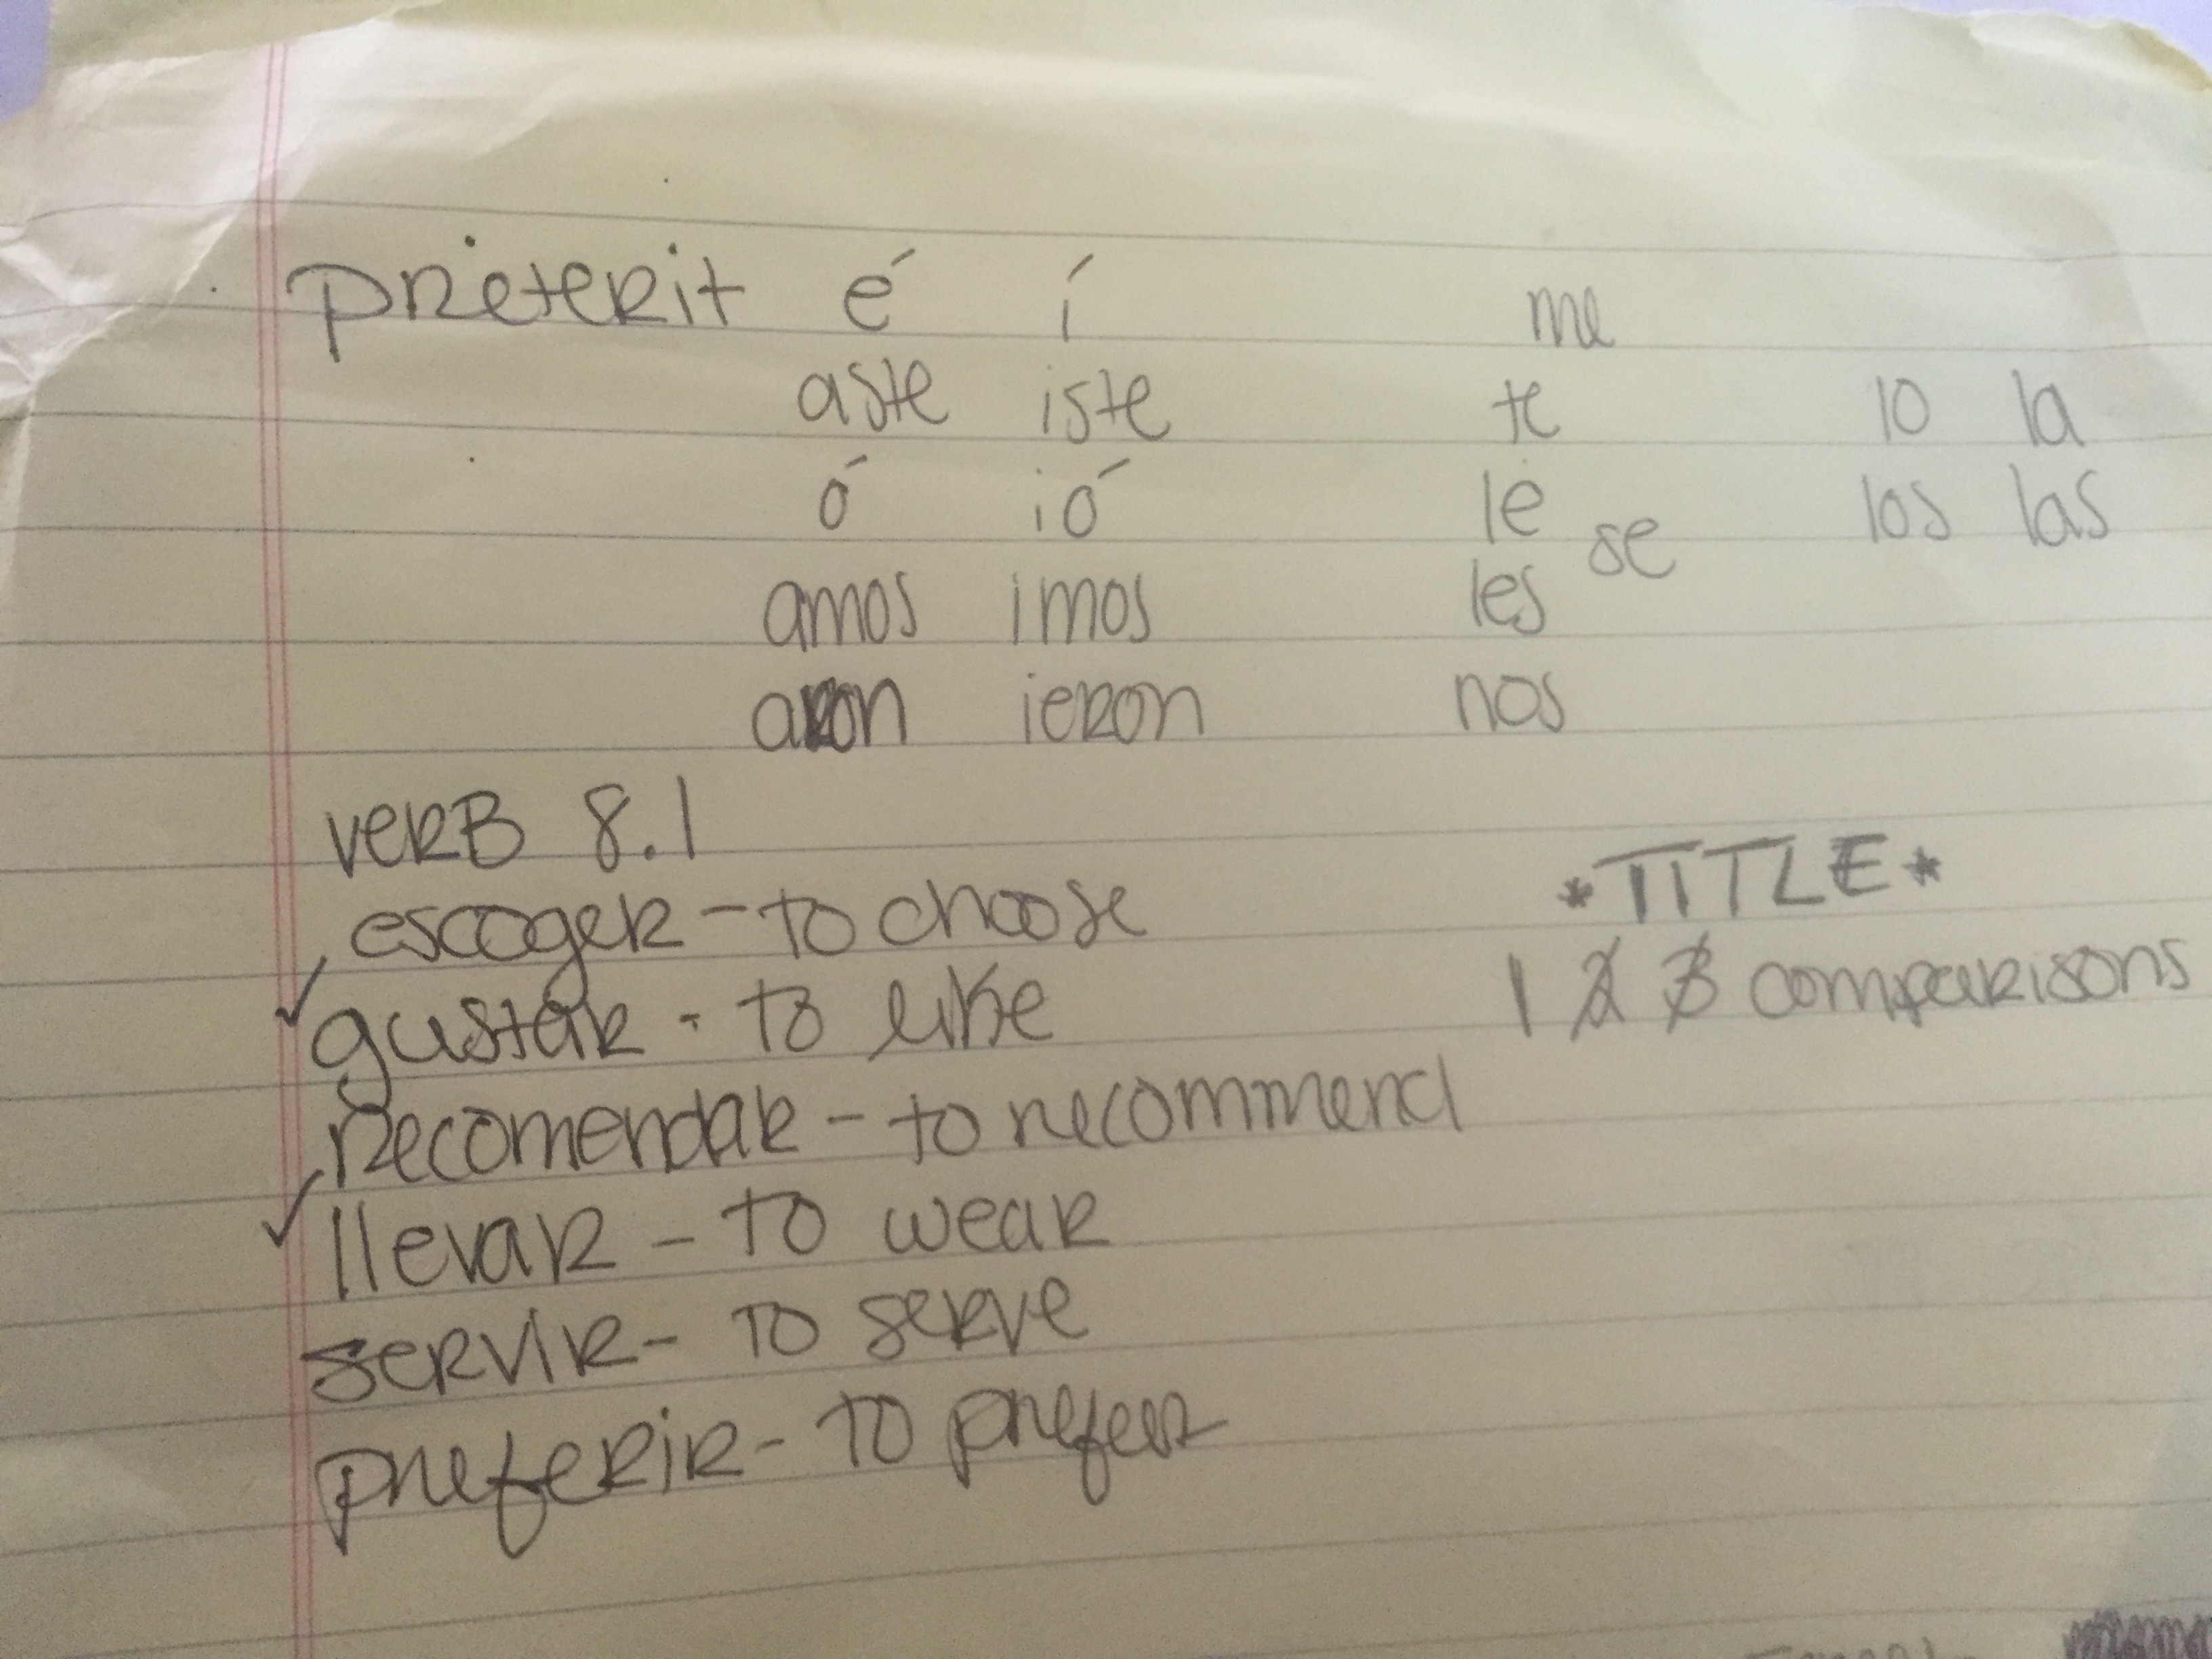 preterit é í me
aste iste te lo la
ó ió le se los las
amos imos les
aron ieron nos
verb 8.1
*TITLE*
escoger - to choose
1 2 3 comparisons
gustar - to like
recomendar - to recommend
llevar - to wear
servir - to serve
preferir - to prefer